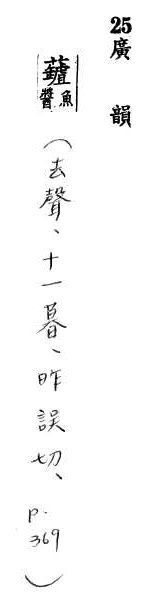 25廣韻
魚醬
(去聲、十一暮、昨誤切、p.369)